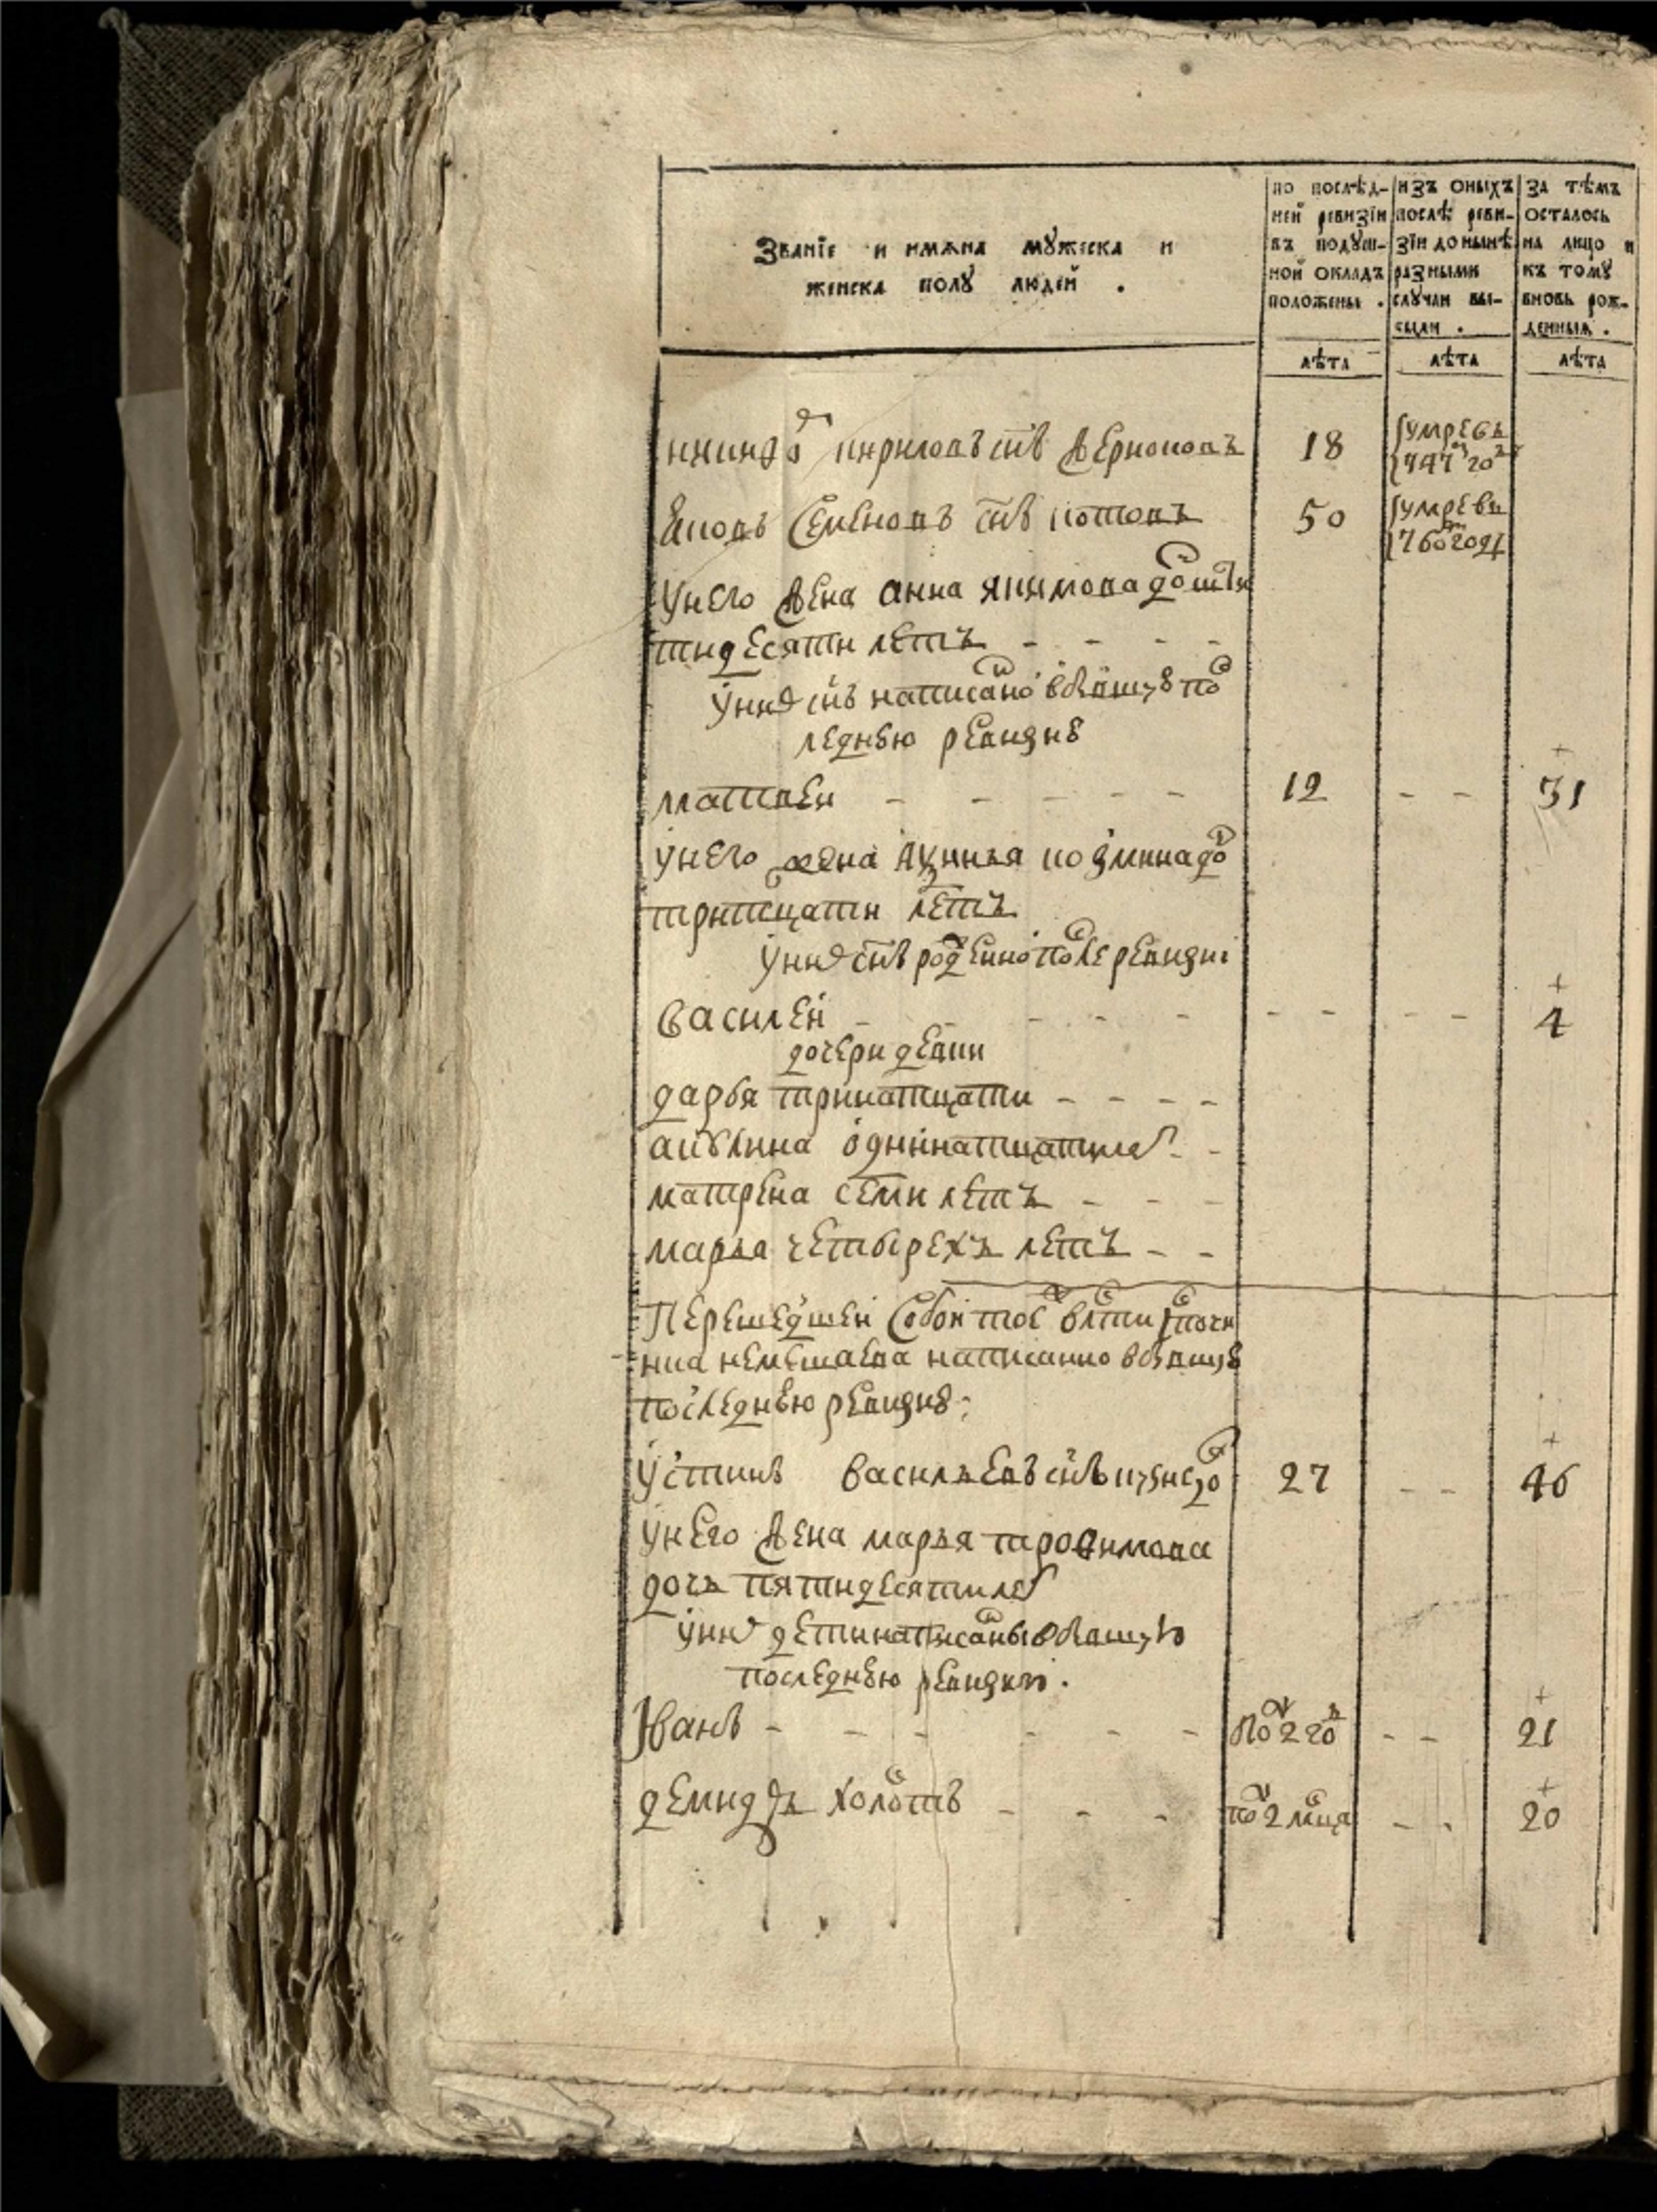 Званїе и имѧна мꙋжеска и
женска полꙋ людей .
по послѣд-
ней ревизїи
въ подꙋш-
ной окладъ
положены .
изъ оныхъ
послѣ реви-
зїи до нынѣ
разными
слꙋчаи вы-
были .
за тѣмъ
осталось
на лицо и
къ томꙋ
вновь рож-
денныѧ .
лѣта
лѣта
лѣта
кириловъ снъ
18
умре въ
747 го
Яковъ Семеновъ снъ котовъ
50
умре въ
760 году
У него жена анна якимова до шти
тидесяти летъ - - - -
У них снъ написано въ бывшую по
леднюю ревизию
матвеи - - - - -
12
- -
31
У него жена козмина до
тритцати летъ
У них снъ рожденно после ревизии
василей - - - -
- -
- -
4
дочери девки
дарья тринатцати - - - -
акулина одиннатцати ле - -
матрена семи летъ - - -
марья четырехъ летъ - -
Перешедшей собой тое вотчи
немешаева написанно въ бывшую
последнюю ревизию:
Устинъ васильевъ снъ
27
- -
46
У него жена марья трофимова
дочь пятидесяти ле
У них дети написаны в бывшую
последнюю ревизию.
Иванъ - - - - - -
пол 2 го
- -
21
демидъ холостъ - - -
пол 2 мсца
- -
20